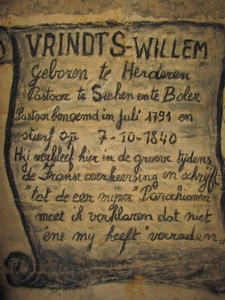 VRINDTS-WILLEM
Geboren te Herderen
Pastoor te Sichen en te Boler
Pastoor benoemd in juli 1791 en
stierf op 7-10-1840
Hij verbleef hier in de groeve tijdens
de Franse overheersing en schrijft
"tot de eer mijner Parochianen
moet ik verklaren dat niet
ene mij heeft "verraden"